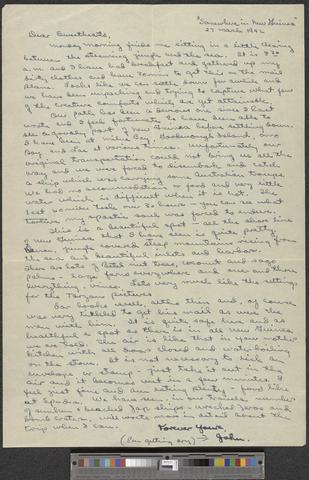 "Somewhere in New Guinea"
27 March 1942
Dear Sweethearts,
Monday morning finds me sitting in a little clearing
between the steaming jungle and the sea. It is 9:30
a.m. and I have had breakfast and gathered up my
dirty clothes and have to get this on the mail
plane. Looks like we can settle down for awhile and
we have been unpacking and trying to capture what few
of the creature comforts which are yet attainable.
Our path has been a devious one since I last
wrote and I feel fortunate to have been able to
see a goodly part of New Guinea before settling down.
I have been at Milne Bay, Goodenough Island, Oro
Bay and Lae at various times. Unfortunately our
original transportation could not bring us all the
way and we were forced to disembark and catch
a ship which was carrying some Australian troops.
We had no accommodations or food and very little
water which is difficult when it is hot. The
last wander took over 30 hours - you can see what
torture my spastic soul was forced to endure.
This is a beautiful spot - all the shore line
of New Guinea that I have seen is quite pretty.
Dense jungle covered steep mountains rising from
the sea and beautiful inlets and harbors.
There are lots of betel nut trees, coconut and sago
palms - large ferns everywhere and over and thru
everything, vines. Looks very much like the settings
for the Tarzan pictures.
Joe looks well, altho thin and, of course
was very tickled to get his mail as were the
men with him. It is quite safe here and as
healthful a spot as there is in all New Guinea
we are told. The air is like that in your mother's
kitchen with all doors closed and water boiling
on the stove. It is not necessary to lick an
envelope or stamp - just take it out in the
air and it becomes wet in a few minutes. I
feel just fine and am eating plenty - food like
at Spadra. We have seen, in our travels, number
of sunken & beached Jap ships - wrecked Zeros and
bomb craters. Will write more in detail about the
trip when I can.
Forever Yours,
(I'm getting dry) → John.